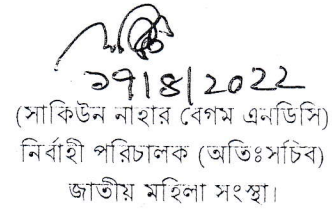 ১৭/৪/2022
(সাকিউন নাহার বেগম এনডিসি)
নির্বাহী পরিচালক (অতিঃসচিব)
জাতীয় মহিলা সংস্থা।